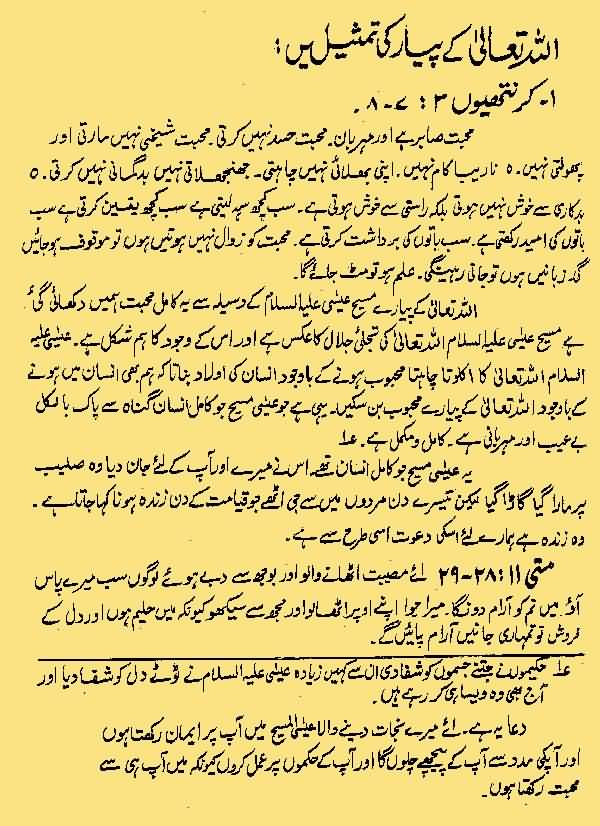 اللہ تعالیٰ کے پیار کی تمثیل میں:
۱- کرنتھیوں ۱۳ : ۴-۸ .
محبت صابر ہے اور مہربان۔ محبت حسد نہیں کرتی۔ محبت شیخی نہیں مارتی اور
پھولتی نہیں۔ ۵ نازیبا کام نہیں۔ اپنی بھلائی نہیں چاہتی۔ جھنجھلاتی نہیں بدگمانی نہیں کرتی۔ ۵
بدکاری سے خوش نہیں ہوتی بلکہ راستی سے خوش ہوتی ہے۔ سب کچھ سہہ لیتی ہے سب کچھ یقین کرتی ہے سب
باتوں کی امید رکھتی ہے۔ سب باتوں کی برداشت کرتی ہے۔ محبت کو زوال نہیں ہوتیں ہوں تو موقوف ہو جائیں
گی زبانیں ہوں تو جاتی رہینگی۔ علم ہو تو مٹ جائے گا۔
اللہ تعالیٰ کے پیارے مسیح عیسٰی علیہ السلام کے وسیلہ سے یہ کامل محبت ہمیں دکھائی گئی
ہے مسیح عیسٰی علیہ السلام اللہ تعالیٰ کی تجلئی جلال کا عکس ہے اور اس کے وجود کا ہم شکل ہے۔ عیسٰی علیہ
السلام اللہ تعالیٰ کا اکلوتا چاہتا محبوب ہونے کے باوجود انسان کی اولاد بنا تاکہ ہم بھی انسان میں ہونے
کے باوجود اللہ تعالیٰ کے پیارے محبوب بن سکیں۔ یہی ہے جو عیسٰی مسیح جو کامل انسان گناہ سے پاک بالکل
بے عیب اور مہربانی ہے۔ کامل و مکمل ہے۔ ؏۱
یہ عیسٰی مسیح جو کامل انسان تھے۔ اس نے میرے اور آپ کے لئے جان دیا وہ صلیب
پر مارا گیا گاڑا گیا لیکن تیسرے دن مردوں میں سے جی اٹھے جو قیامت کے دن زندہ ہونا کہا جاتا ہے۔
وہ زندہ ہے ہمارے لئے اسکی دعوت اسی طرح سے ہے۔
متی ۱۱ : ۲۸-۲۹ اے مصیبت اٹھانے والو اور بوجھ سے دبے ہوئے لوگوں سب میرے پاس
آؤ میں تم کو آرام دونگا۔ میرا جوا اپنے اوپر اٹھالو اور مجھ سے سیکھو کیونکہ میں حلیم ہوں اور دل کے
فروش تو تمہاری جانیں آرام پائیں گے۔
؏۱ حکیموں نے جتنے جسموں کو شفا دی ان سے کہیں زیادہ عیسٰی علیہ السلام نے ٹوٹے دل کو شفا دیا اور
آج بھی وہ ویسا ہی کر رہے ہیں۔
دعا یہ ہے۔ اے میرے نجات دینے والا عیسٰی المسیح میں آپ پر ایمان رکھتا ہوں
اور آپکی مدد سے آپ کے پیچھے چلوں گا اور آپ کے حکموں پر عمل کروں کیونکہ میں آپ ہی سے
محبت رکھتا ہوں۔